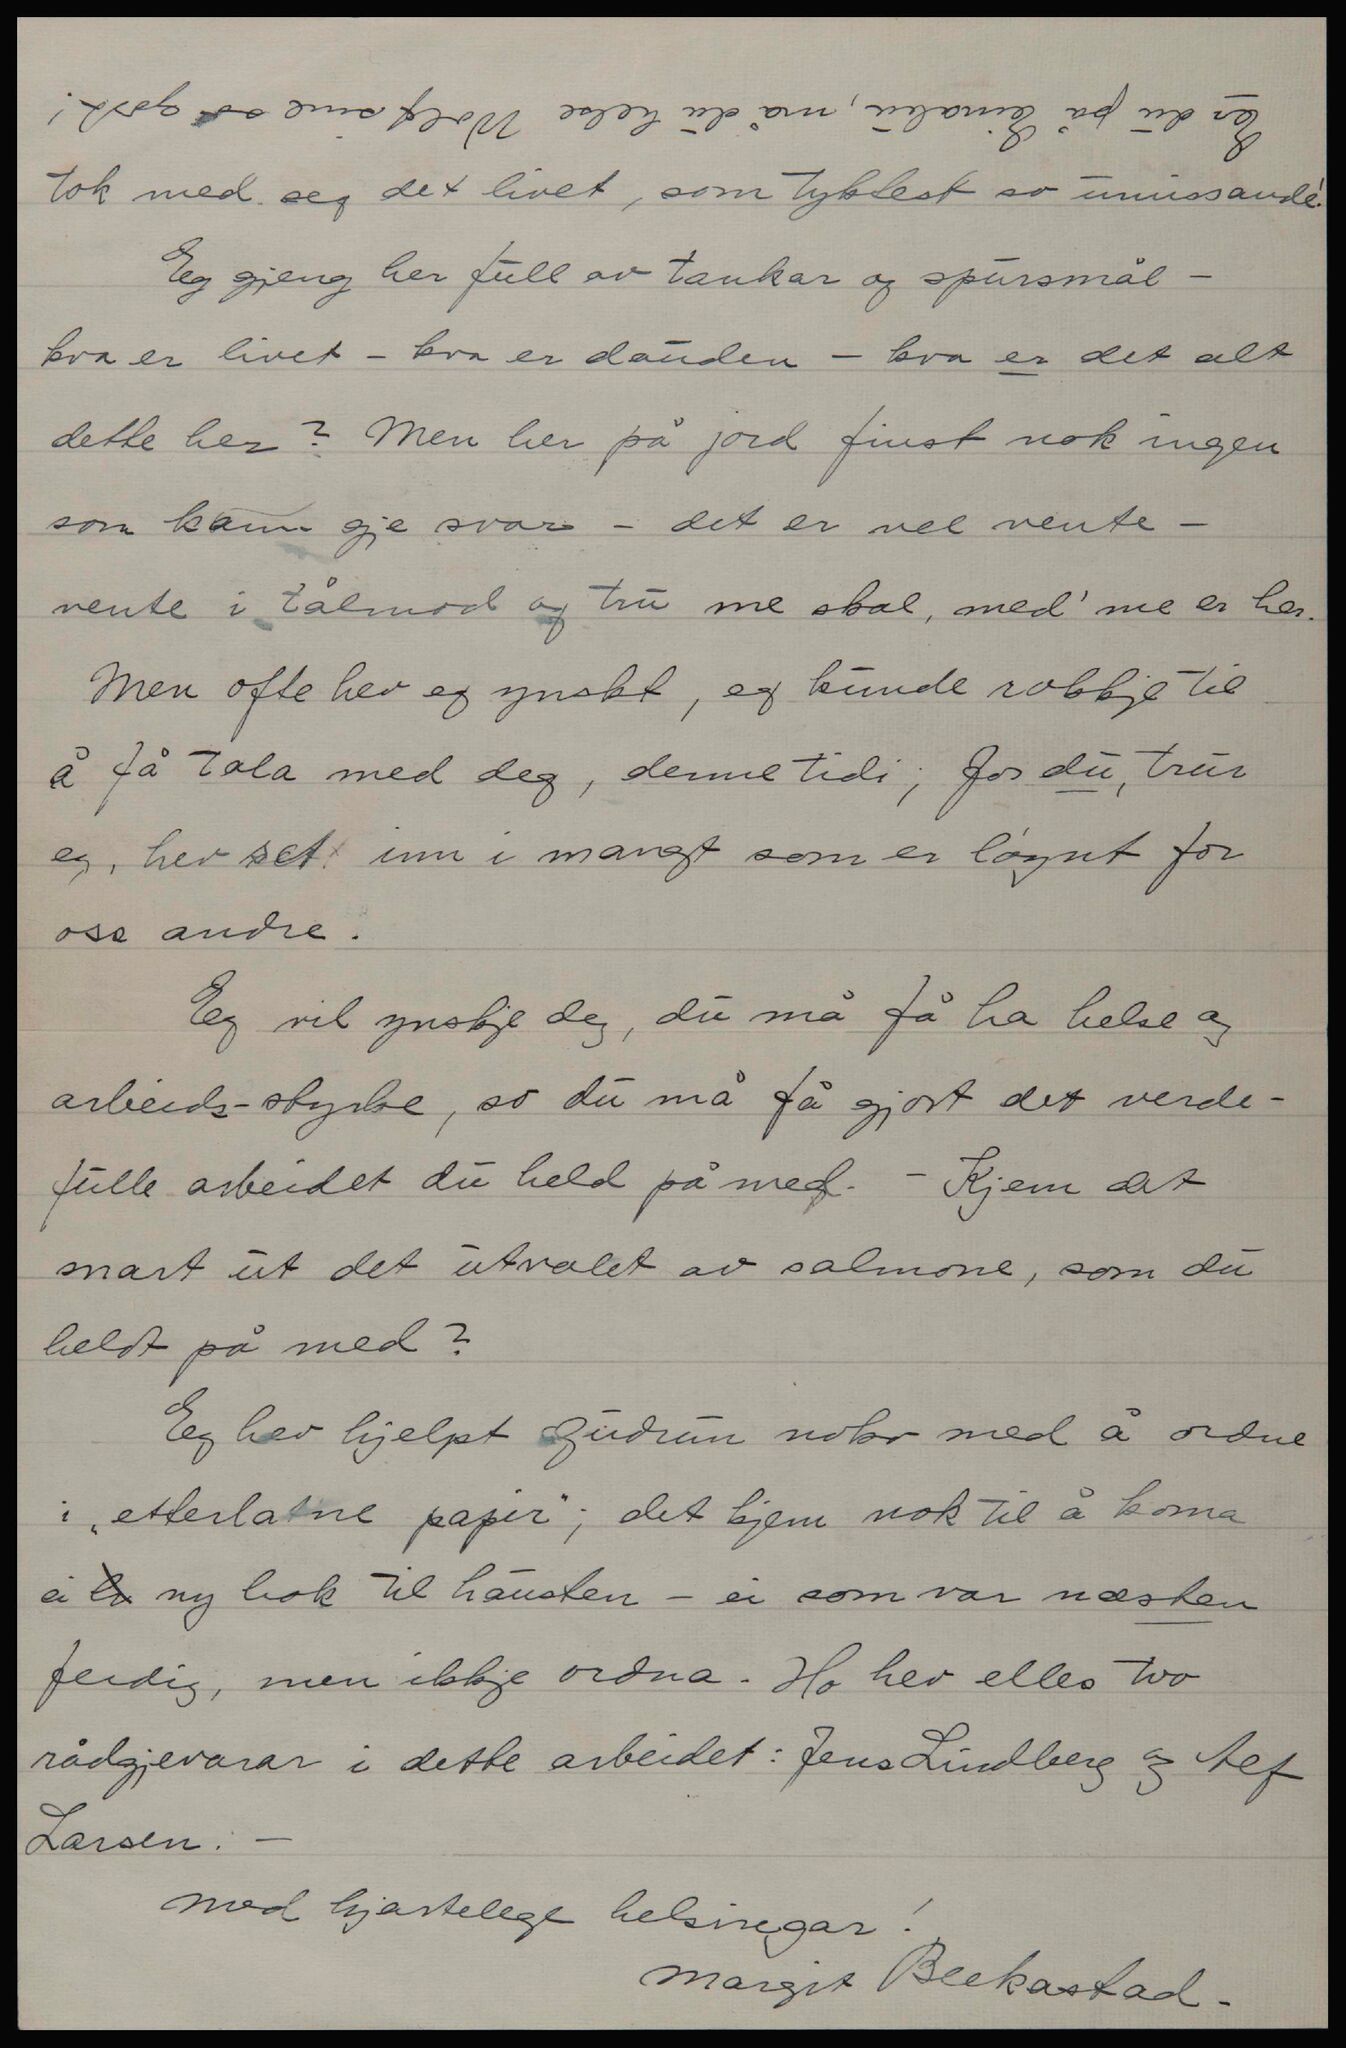 Er du på Einabu, må du helse Wolf sine så godt!
tok med seg det livet, som tyktest so umissande!
Eg gjeng her full av tankar og spursmål –
kva er livet – kva er dauden – kva er det alt
dette her? Men her på jord finst nok ingen
som kann gje svar – det er vel vente –
vente i tålmod og tru me skal, med' me er her.
Men ofte hev eg ynskt, eg kunde rokkje til
å få tala med deg, denne tidi; for du, trur
eg, hev set inn i mangt som er løynt for
oss andre.
Eg vil ynskje deg, du må få ha helse og
arbeids-styrke, so du må få gjort det verde-
fulle arbeidet du held på med. – Kjem det
snart ut det utvalet av salmone, som du
heldt på med?
Eg hev hjelpt Gudrun noko med å ordne
i „etterlatne papir“; det kjem nok til å koma
ei ny bok til hausten – ei som var næsten
ferdig, men ikkje ordna. Ho hev elles two
rådgjevarar i dette arbeidet: Jens Lindberg og Alf
Larsen. –
Med hjartelege helsingar!
Margit Bleekastad.